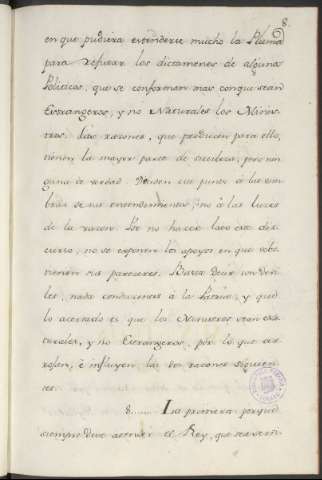 8.
en que pudiera estenderse mucho la Pluma
para refutar los dictamenes de algunos
Politicos, que se conforman mas con que sean
Estrangeros, y no Naturales los Minis-
tros. Las razones, que producen para ello,
tienen la mayor parte de credulas, pero nin
guna de verdad. este punto à las som-
bras de su entendimiento, no à las luces
de la razon. Por no hacer largo este dis-
curso, no se exponen los apoyos en que sobs-
tienen sus pareceres. Basta Decir son deviles,
nada conducentes à la Patria, y que
lo acertado es que los Ministros sean na-
turales, y no Estrangeros, por lo que
è influyen las razones siguien-
tes.
8...... La primera porque
siempre deve atender el Rey, que